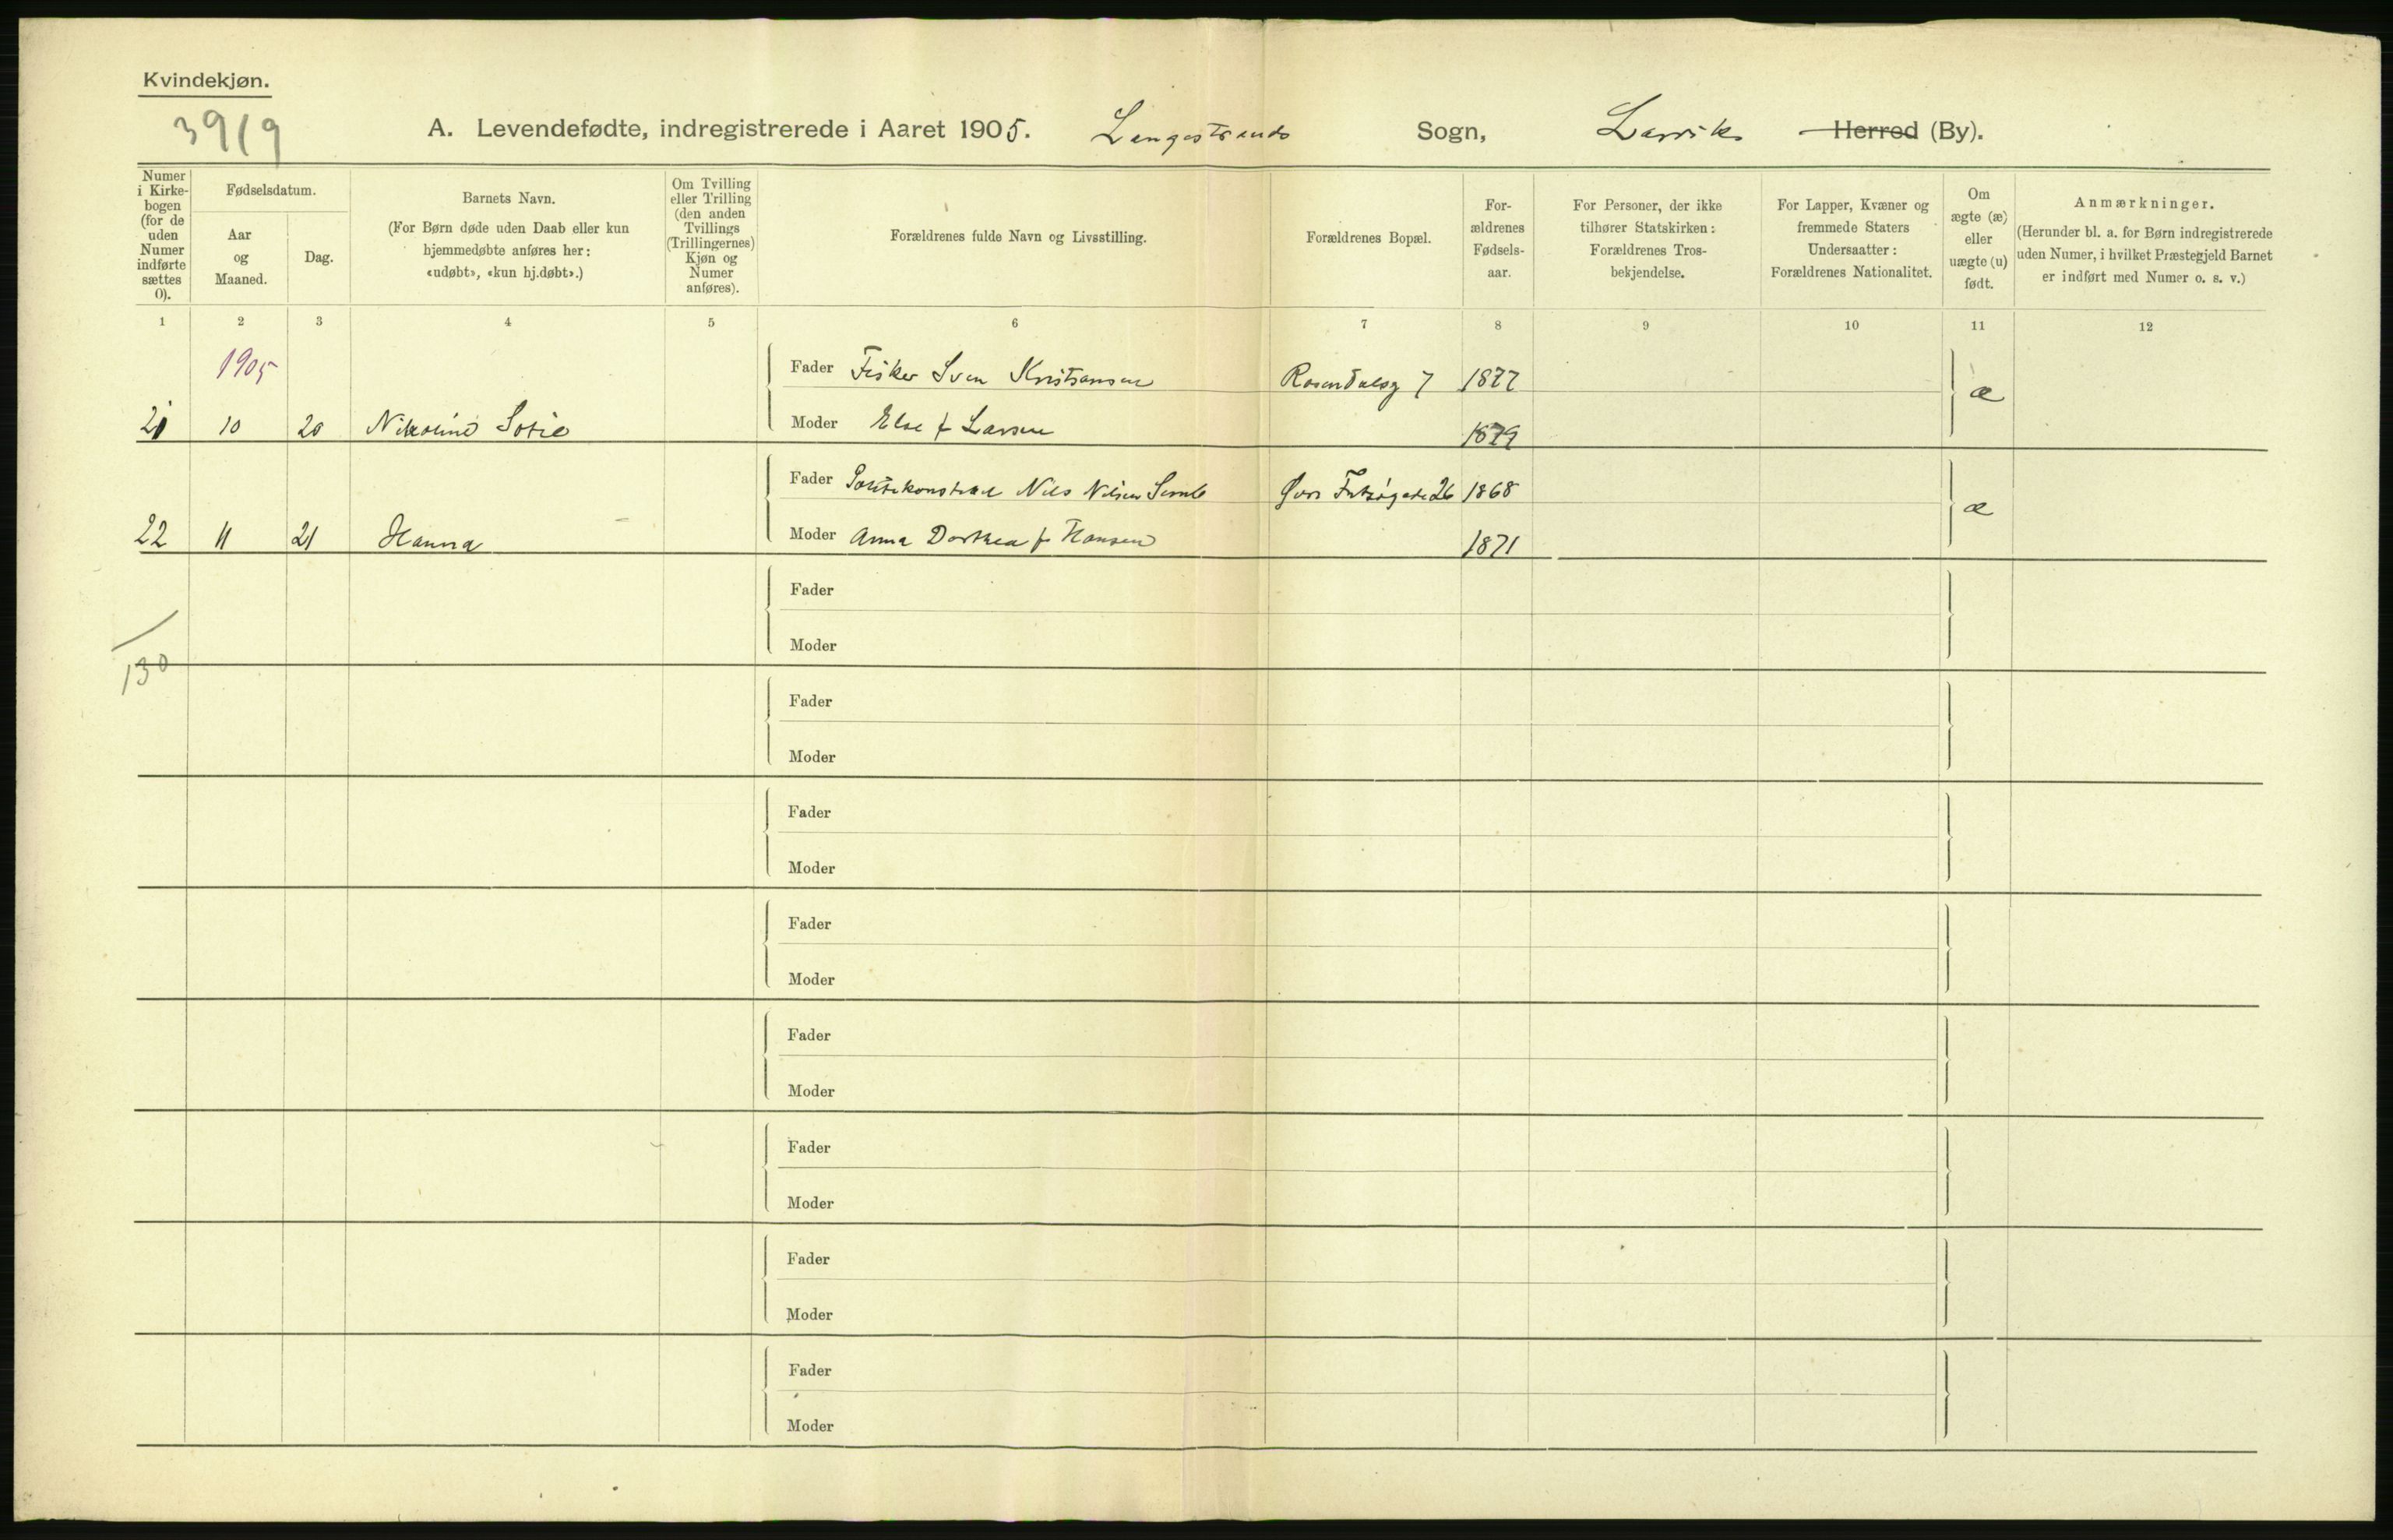 Kvindekjøn.
3919
A. Levendefødte, indregistrerede i Aaret 1905. Langestrands Sogn, Larviks Herred (By).
Numer i Kirkebogen (for de uden Numer indførte sættes 0).
Fødselsdatum.
Aar og Maaned.
Dag.
Barnets Navn.
(For Børn døde uden Daab eller kun hjemmedøbte anføres her: «udøbt», «kun hj.døbt».)
Om Tvilling eller Trilling (den anden Tvillings (Trillingernes) Kjøn og Numer anføres).
Forældrenes fulde Navn og Livsstilling.
Forældrenes Bopæl.
For-ældrenes Fødsels-aar.
For Personer, der ikke tilhører Statskirken: Forældrenes Tros-bekjendelse.
For Lapper, Kvæner og fremmede Staters Undersaatter: Forældrenes Nationalitet.
Om ægte (æ) eller uægte (u) født.
Anmærkninger.
(Herunder bl. a. for Børn indregistrerede uden Numer, i hvilket Præstegjeld Barnet er indført med Numer o. s. v.)
1 2 3 4 5 6 7 8 9 10 11 12
1905
Fader Fisker Sven Kristiansen Rosendalsg 7 1877 æ
21 10 20 Nikoline Sofie Moder Else f Larsen 1879
Fader Politikonstabel Nils Nilsen Øvre Fritzøgade 26 1868 æ
22 11 21 Hanna Moder Anna Dorthea f Hansen 1871
Fader
Moder
130
Fader
Moder
Fader
Moder
Fader
Moder
Fader
Moder
Fader
Moder
Fader
Moder
Fader
Moder